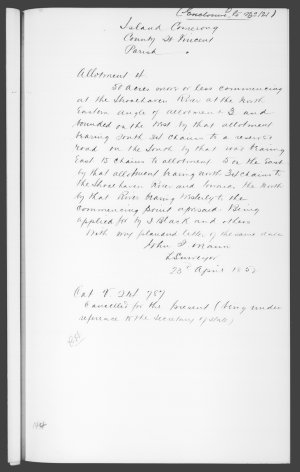 (Enclosure to No 121)
Island Comerong
County St Vincent
Parish
Allotment 4
50 acres more or less commencing
at the Shoalhaven River at the North
Eastern angle of allotment 3 and
bounded on the West by that allotment
bearing South 31 chains to a reserve
road on the South by that road bearing
East 15 chains to allotment 5 on the East
by that allotment bearing North 31 chains to
the Shoalhaven River and towards the North
by that River bearing Westerly to the
commencing point aforesaid. Being
applied for by J Black and others
With my plan and letter of the same date
John
L Surveyor
23 April 1852
Cat 9 787
Cancelled for the present (being under
reference to the Secretary of State)